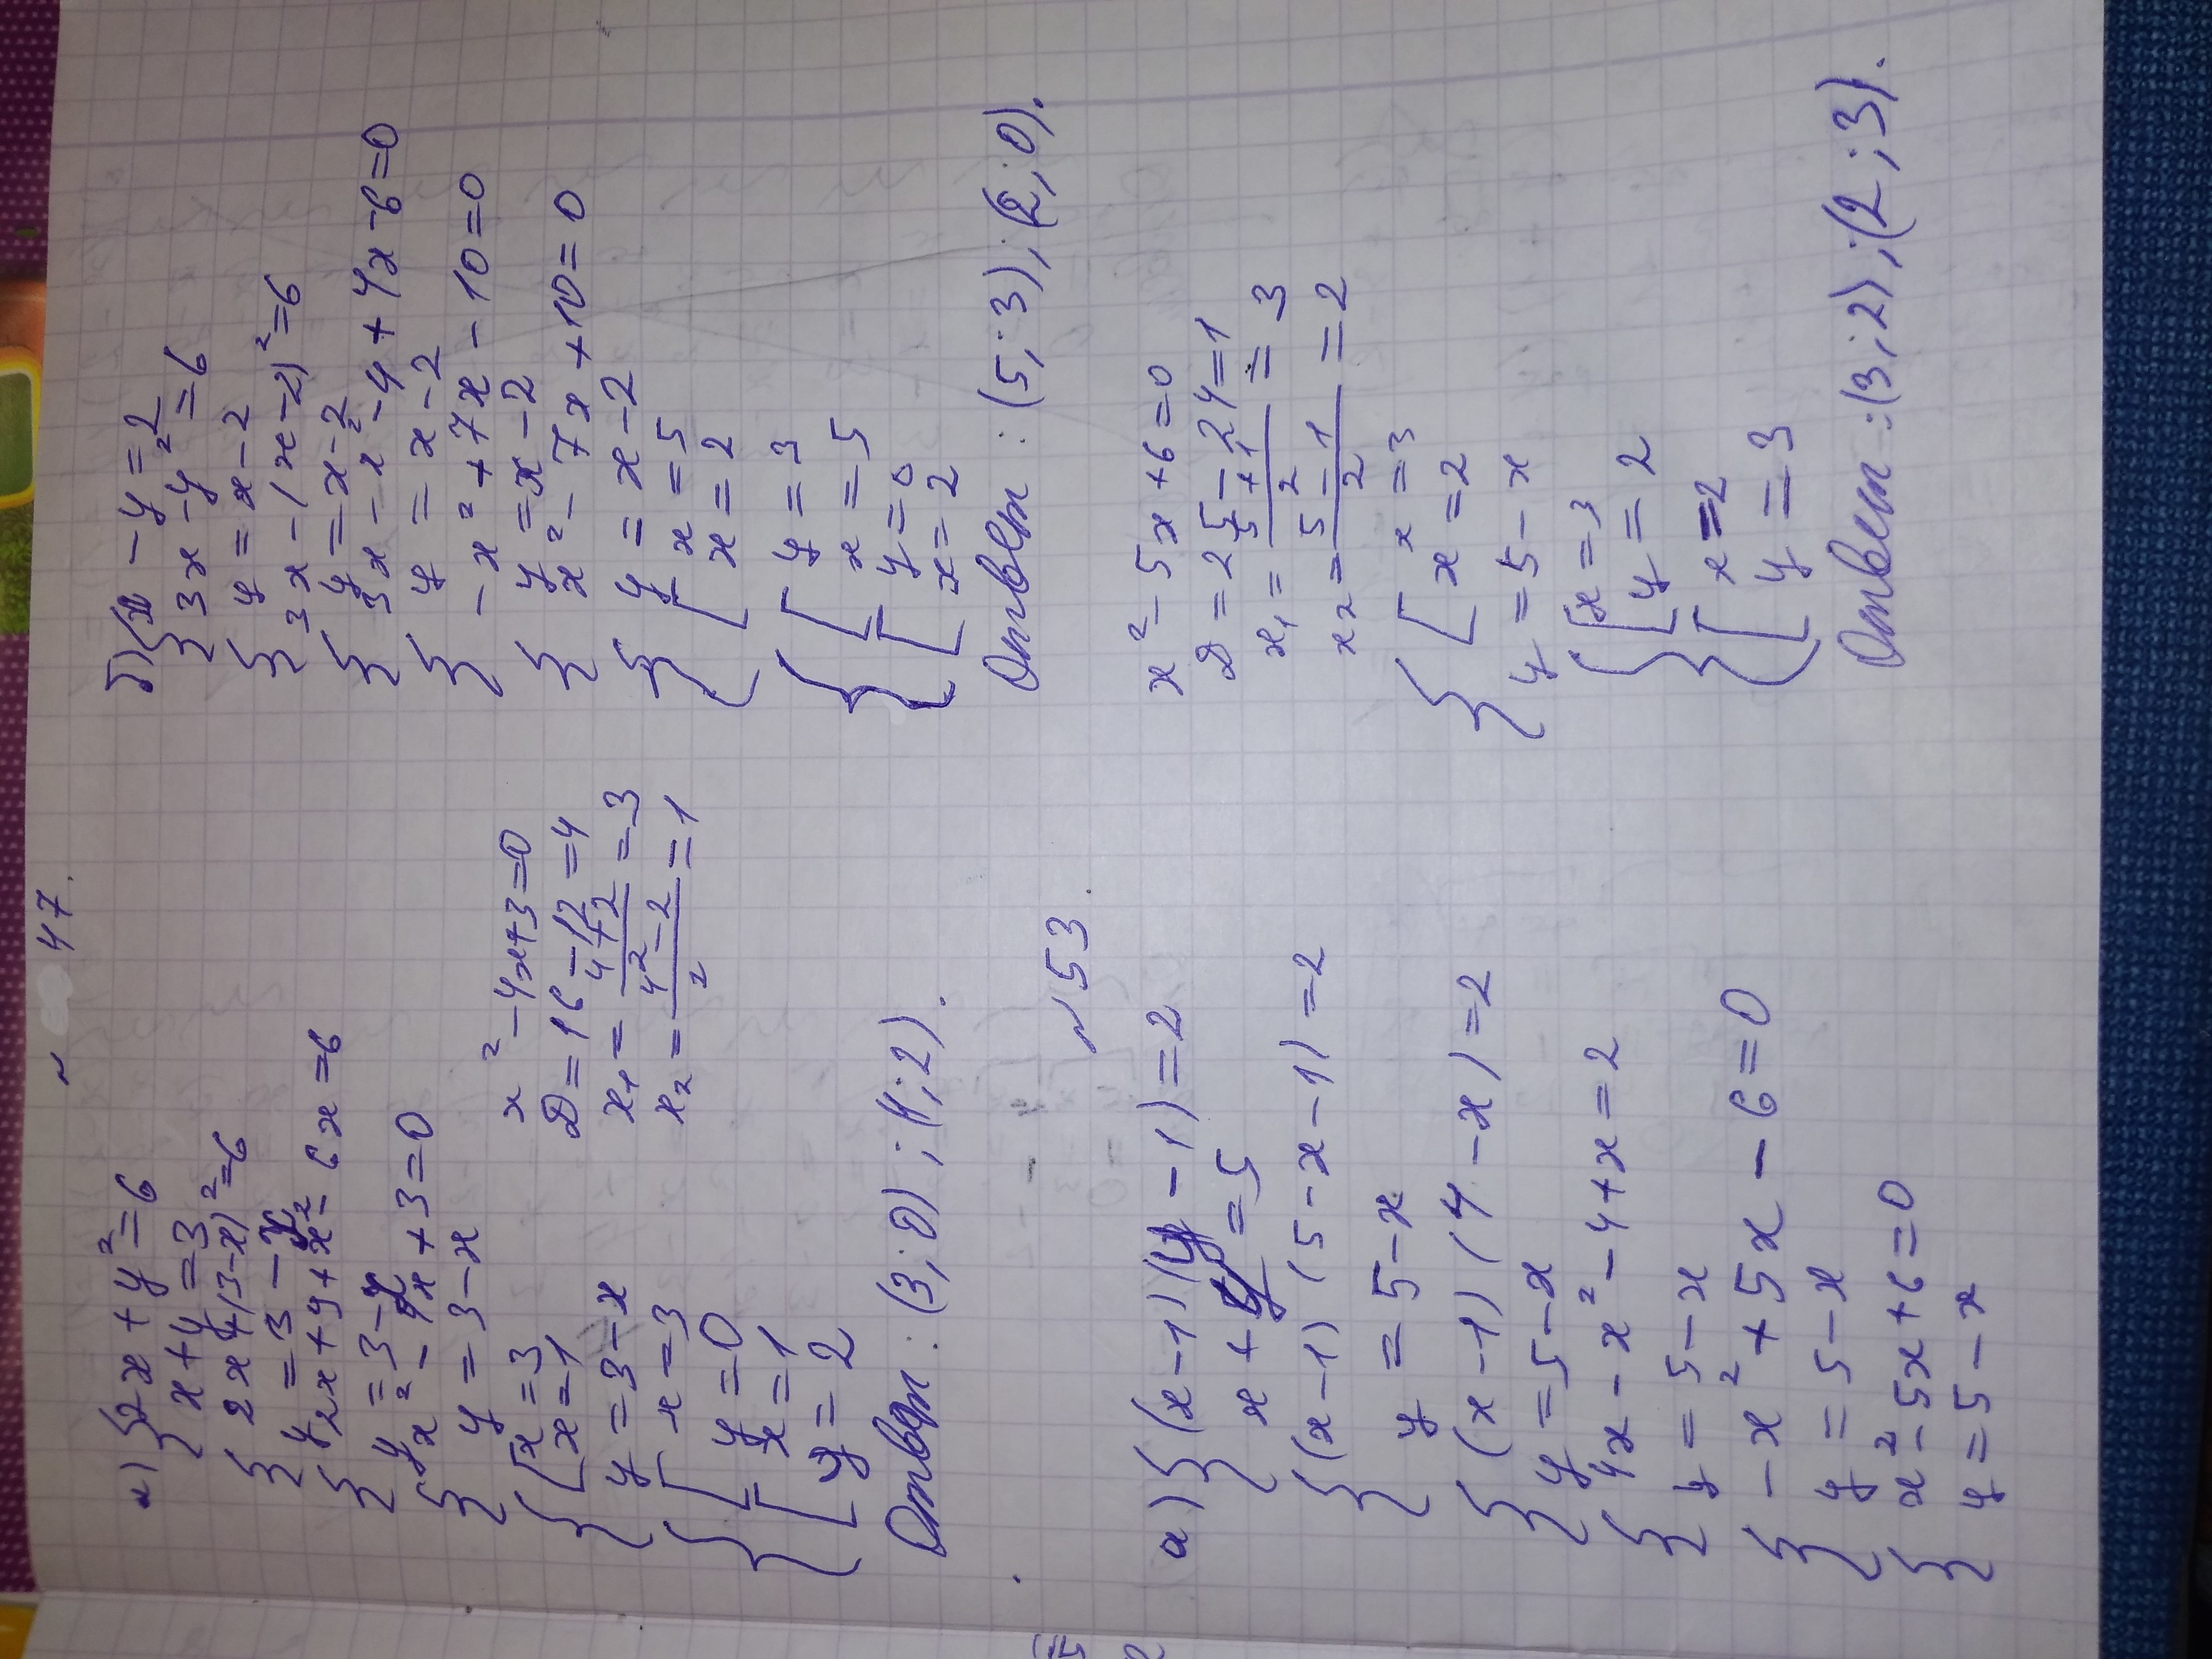 № 47.
а) { 2x + y² = 6
x + y = 3
{ 2x + (3 - x)² = 6
y = 3 - x
{ 2x + 9 + x² - 6x = 6
y = 3 - x
{ x² - 4x + 3 = 0
y = 3 - x
{ [ x = 3
x = 1
y = 3 - x
{ [ x = 3
y = 0
[ x = 1
y = 2
x² - 4x + 3 = 0
D = 16 - 12 = 4
x₁ = (4 + 2)/2 = 3
x₂ = (4 - 2)/2 = 1
Ответ: (3; 0); (1; 2).
б) { x - y = 2
3x - y² = 6
{ y = x - 2
3x - (x - 2)² = 6
{ y = x - 2
3x - x² - 4 + 4x - 6 = 0
{ y = x - 2
- x² + 7x - 10 = 0
{ y = x - 2
x² - 7x + 10 = 0
{ y = x - 2
[ x = 5
x = 2
{ [ y = 3
x = 5
[ y = 0
x = 2
Ответ: (5; 3); (2; 0).
№ 53.
а) { (x - 1)(y - 1) = 2
x + y = 5
{ (x - 1)(5 - x - 1) = 2
y = 5 - x
{ (x - 1)(4 - x) = 2
y = 5 - x
{ 4x - x² - 4 + x = 2
y = 5 - x
{ - x² + 5x - 6 = 0
y = 5 - x
{ x² - 5x + 6 = 0
y = 5 - x
x² - 5x + 6 = 0
D = 25 - 24 = 1
x₁ = (5 + 1)/2 = 3
x₂ = (5 - 1)/2 = 2
{ [ x = 3
x = 2
y = 5 - x
{ [ x = 3
y = 2
[ x = 2
y = 3
Ответ: (3; 2); (2; 3).